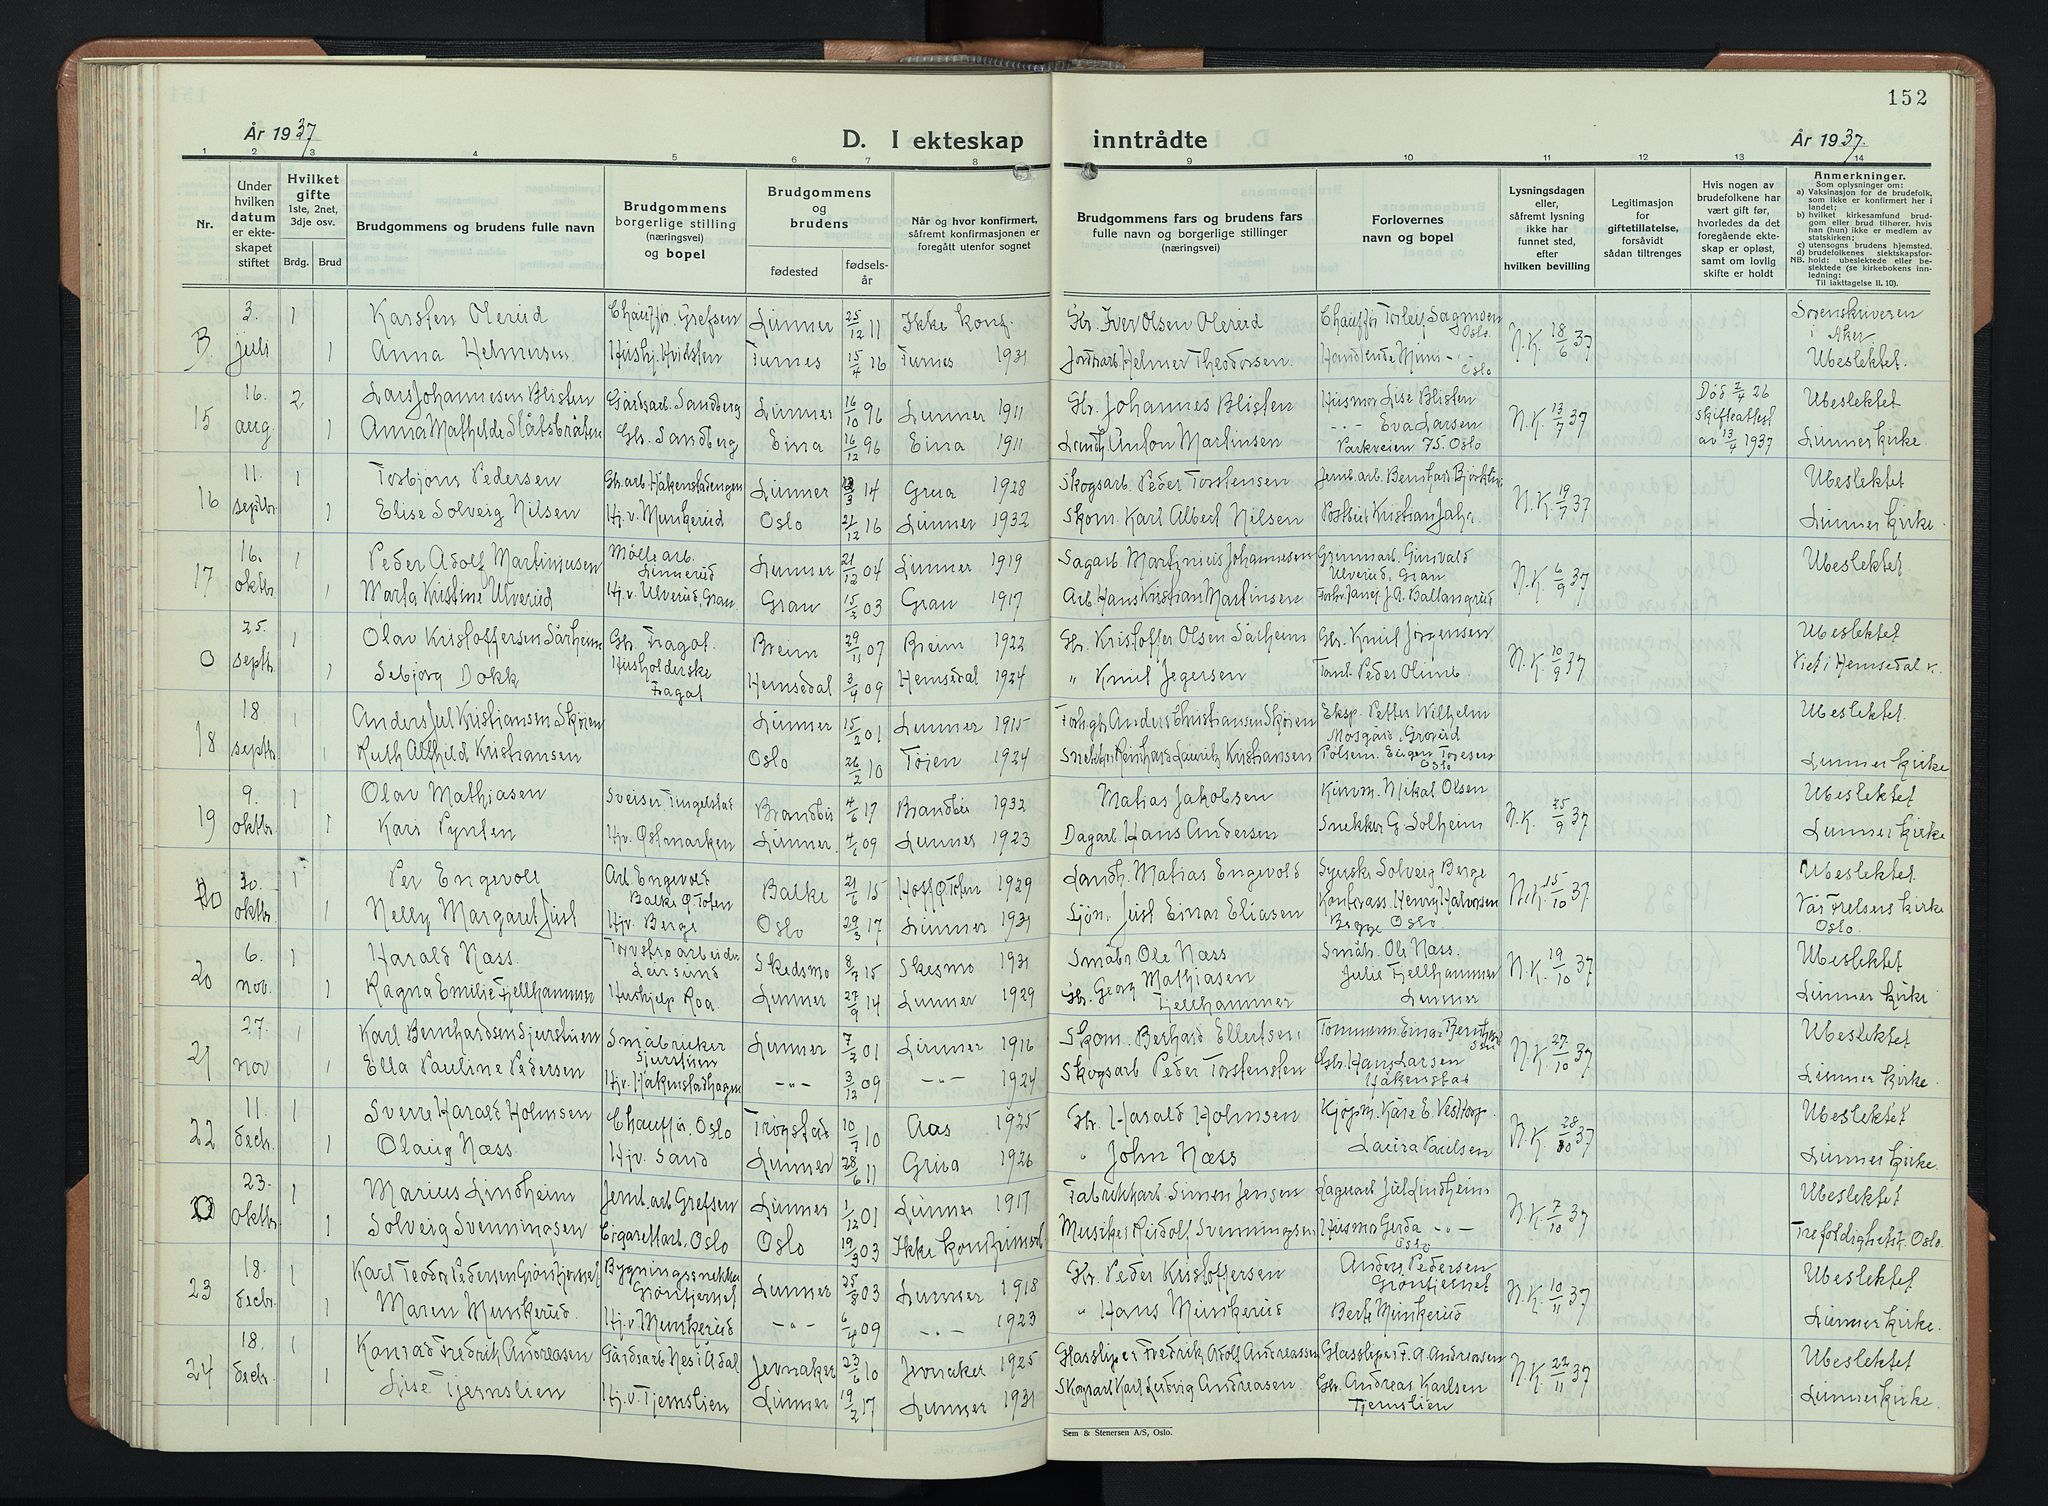 152
År 1937
D. I ekteskap inntrådte
År 1937.
1 2 3 4 5 6 7 8 9 10 11 12 13 14
Nr.
Under hvilken datum er ekteskapet stiftet
Hvilket gifte 1ste, 2net, 3dje osv.
Brdg. Brud
Brudgommens og brudens fulle navn
Brudgommens borgerlige stilling (næringsvei) og bopel
Brudgommens og brudens
fødested
fødselsår
Når og hvor konfirmert, såfremt konfirmasjonen er foregått utenfor sognet
Brudgommens fars og brudens fars fulle navn og borgerlige stillinger (næringsvei)
Forlovernes navn og bopel
Lysningsdagen eller, såfremt lysning ikke har funnet sted, efter hvilken bevilling
Legitimasjon for giftetillatelse, forsåvidt sådan tiltrenges
Hvis nogen av brudefolkene har vært gift før, hvorledes da det foregående ekteskap er opløst, samt om lovlig skifte er holdt
Anmerkninger.
Som oplysninger om:
a) Vaksinasjon for de brudefolk, som ikke er konfirmert her i landet;
b) hvilket kirkesamfund brudgom eller brud tilhører, hvis han (hun) ikke er medlem av statskirken;
c) utensogns brudens hjemsted.
d) brudefolkenes slektskapsforhold: ubeslektede eller beslektede (se kirkebokens innledning;
NB.
Til iakttagelse II. 10).
3. 1 Karsten Olerud Chauffør, Grefsen Lunner 25/12 11 Ikke konf. Gbr. Iver Olsen Olerud Chauffør Torleif Sagmoen Oslo N.K. 18/6 37 Sorenskriveren i Aker
B. juli 1 Anna Helmersen Hushj. Hvidsten Furnes 15/4 16 Furnes 1931 Jordarb. Helmer Theodorsen Ubeslektet.
16. 2 Lars Johannesen Blisten Gårdsarb. Sandberg Lunner 16/10 96 Lunner 1911 Gbr. Johannes Blisten Husmor Lise Blisten N.K. 13/7 37 Død 2/4 26 Ubeslektet
15 aug. 1 Anna Mathilde Slåtsbråten Gbr. Sandberg Eina 16/12 96 Eina 1911 Anton Martinsen Eva Larsen Parkveien 75. Oslo skifteattest av 13/4 1937 Lunner kirke.
11. 1 Torbjørn Pedersen Gbr.arb. Håkenstadengen Lunner 14 Grua 1928 Skogsarb. Peder Torstensen Jernb.arb. Bernhard N.K. 19/7 37 Ubeslektet
16 septbr 1 Elise Solveig Nilsen Hj.v. Munkerud Oslo 21/12 16 Lunner 1932 Skom. Karl Albert Nilsen Kristian Lunner kirke.
16. 1 Peder Adolf Martiniusen Møllearb. Linnerud Lunner 21/12 04 Lunner 1919 Sagarb. Martinius Johannesen Ulverud, Gran N.K. 6/9 37 Ubeslektet.
17 oktbr 1 Marta Kristine Ulverud Hj.v. Ulverud, Gran Gran 03 Gran 1917 Arb. Hans Kristian Martinsen J.A. Ballangrud
25. 1 Olav Kristoffersen Sårheim Gbr. Fragot Breim 29/11 07 Breim 1922 Gbr. Kristoffer Olsen Sårheim Gbr. Knut Jørgensen N.K. 10/9 37 Ubeslektet
0 septbr. 1 Sebjørg Dokk Husholderske Fragot Hemsedal 3/4 09 Hemsedal 1924 " Knut Jegersen Peder Olimb Viet i Hemsedal k.
18 1 Anders Jul Kristiansen Skøien Lunner 15/2 01 Lunner 1915 Anders Christiansen Skøien Eksp. Petter Wilhelm Mosgård, Grorud Ubeslektet.
18 septbr 1 Ruth Alfhild Kristiansen Oslo 26/2 10 Tøien 1924 Snekker Reinhard Lauritz Kristiansen Pølsem. Eugen Toresen Oslo Lunner kirke
9. 1 Olav Mathiasen Sveiser Tingelstad Brandbu 4/6 17 Brandbu 1932 Matias Jakobsen Nikal Olsen N.K. 25/9 37 Ubeslektet
19 oktbr 1 Kari Pynten Hjv. Østmarken Lunner 09 Lunner 1923 Dagarb. Hans Andersen Snekker G. Solheim Lunner kirke
30. 1 Per Engevold Arb. Engevold Balke Ø Toten Balke 21/6 15 Hoff Ø Toten 1929 Landh. Matias Engevold Syerske Solveig Berge N.K. 15/10 37. Ubeslektet.
oktbr. 1 Nelly Margaret Just Hjv. Berge Oslo 29/3 17 Lunner 1931 Sjøm. Just Einar Eliasen Kontorass. Henry Halvorsen Oslo Vår Frelsers kirke Oslo.
6. 1 Harald Næss Torvstrøarbeider Leirsund Skedsmo 8/7 15 Skesmo 1931 Småbr. Ole Næss Småbr. Ole Næss N.K. 19/10 37 Ubeslektet
20 nov. 1 Ragna Emilie Fjellhammer Hushjelp Roa Lunner 27/9 14 Lunner 1929 Gbr. Georg Mathiasen Fjellhammer Julie Fjellhammer Lunner Lunner kirke
27. 1 Karl Bernhardsen Sjurstuen Småbruker Sjurstuen Lunner 01 Lunner 1916 Skom. Berhard Ellertsen Tømmerm. Einar N.K. 27/10 37 Ubeslektet
21 nov 1 Ella Pauline Pedersen Hjv. Håkenstadhagen -"- 3/12 09 -"- 1924 Skogsarb Peder Torstensten Gbr. Hans Larsen Håkenstad Lunner kirke.
11. 1 Sverre Harald Holmsen Chauffør, Oslo Trøgstad 10/7 10 Aas 1925 Gbr. Harald Holmsen Kjøpm. Kåre E. N.K. 28/10 37 Ubeslektet
22 decbr. 1 Olaug Næss Hjv. Sand Lunner 28/6 11 Grua 1926 " John Næss Laura Paulsen Lunner kirke.
23. 1 Marius Lindheim Jernb.arb Grefsen Lunner 1/12 01 Lunner 1917 Fabrikkarb. Simen Jensen Lagerarb. Jul Lindheim N.K. 7/10 37 Ubeslektet
0 oktbr. 1 Solveig Svenningsen Cigarettarb. Oslo Oslo 19/3 03 Ikke konfirmert Musiker Rudolf Svenningsen Husmor Gerda -"- Oslo Trefoldighetsk. Oslo.
18. 1 Karl Teodor Pedersen Grøntjernet Bygningssnekker Grøntjernet Lunner 25/8 03 Lunner 1918 Gbr. Peder Kristoffersen Anders Pedersen Grøntjernet N.K. 10/11 37 Ubeslektet
23 decbr. 1 Maren Munkerud. Hj.v Munkerud -"- 6/4 09 -"- 1923 " Hans Munkerud Munkerud Lunner kirke.
18. 1 Konrad Fredrik Andreasen Gårdsarb Nes i Ådal Jevnaker 23/6 10 Jevnaker 1925 Glassliper Fredrik Adolf Andreassen Glassliper F. A. Andreassen N.K. 22/11 37 Ubeslektet
24 decbr. 1 Lise Tjernslien Hj.v. Tjernslien Lunner 19/2 17 Lunner 1931 Skogsarb Karl Ludvig Andreasen. Gbr. Andreas Karlsen Tjernslien Lunner kirke.
Sem & Stenersen A/S, Oslo.